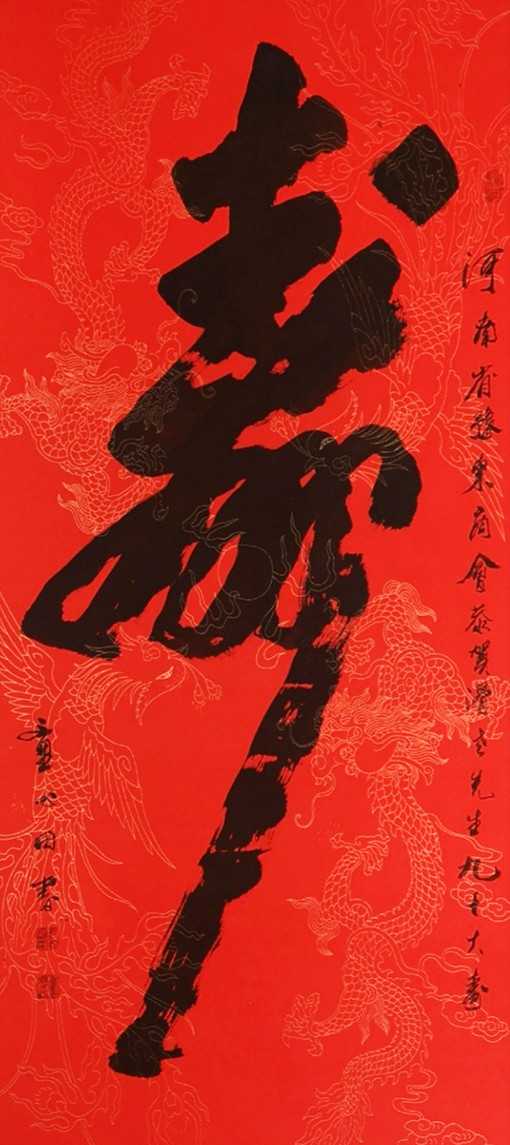 河南省豫東商會恭賀老先生九十大壽
壽
心田書